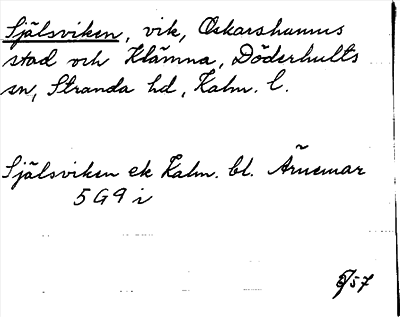 Själsviken, vik, Oskarshamns
stad och Klämna, Döderhults
sn, Stranda hd, Kalm. l.
Själsviken ek Kalm. bl. Ärnemar
5G9i
57